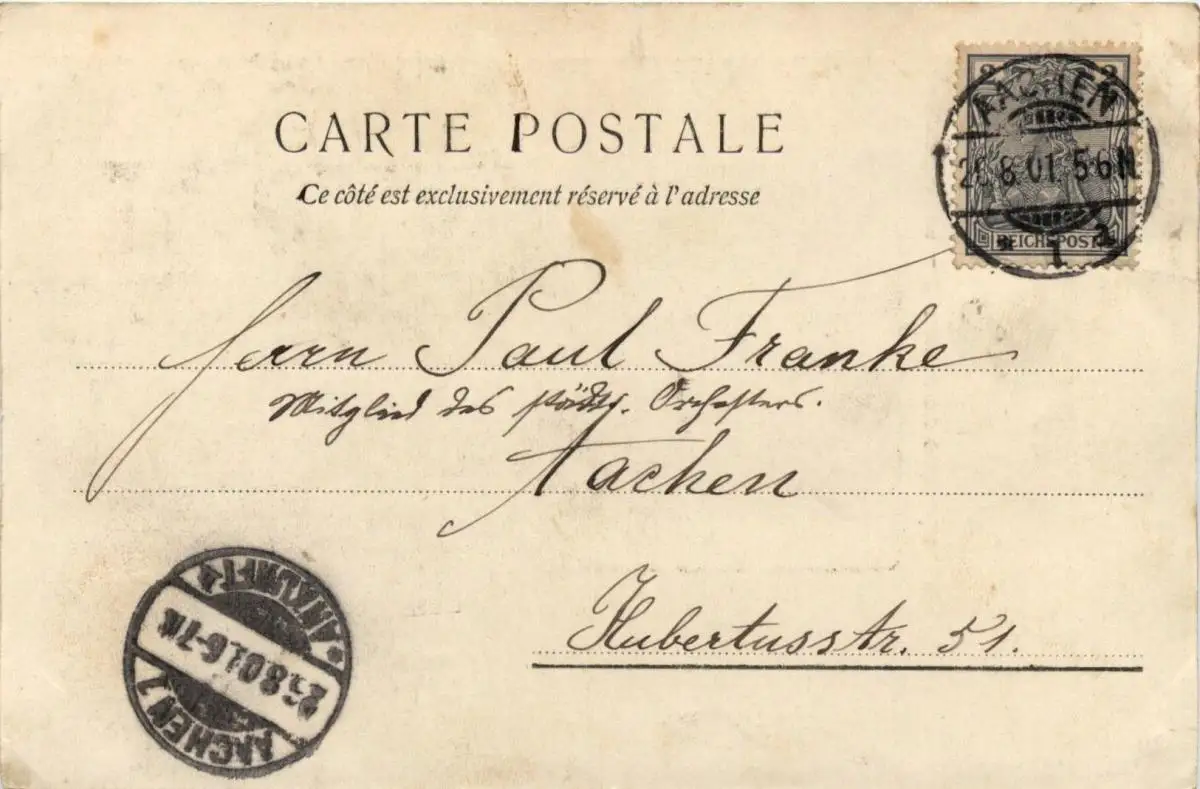 CARTE POSTALE
Ce côté est exclusivement réservé à l'adresse
2 2
REICHSPOST
AACHEN
26.8.01. 5-6N
* 1 1
Herrn Paul Franke
Mitglied des städt. Orchesters.
Aachen
Hubertusstr. 51.
AACHEN 1
26.8.01.6-7N